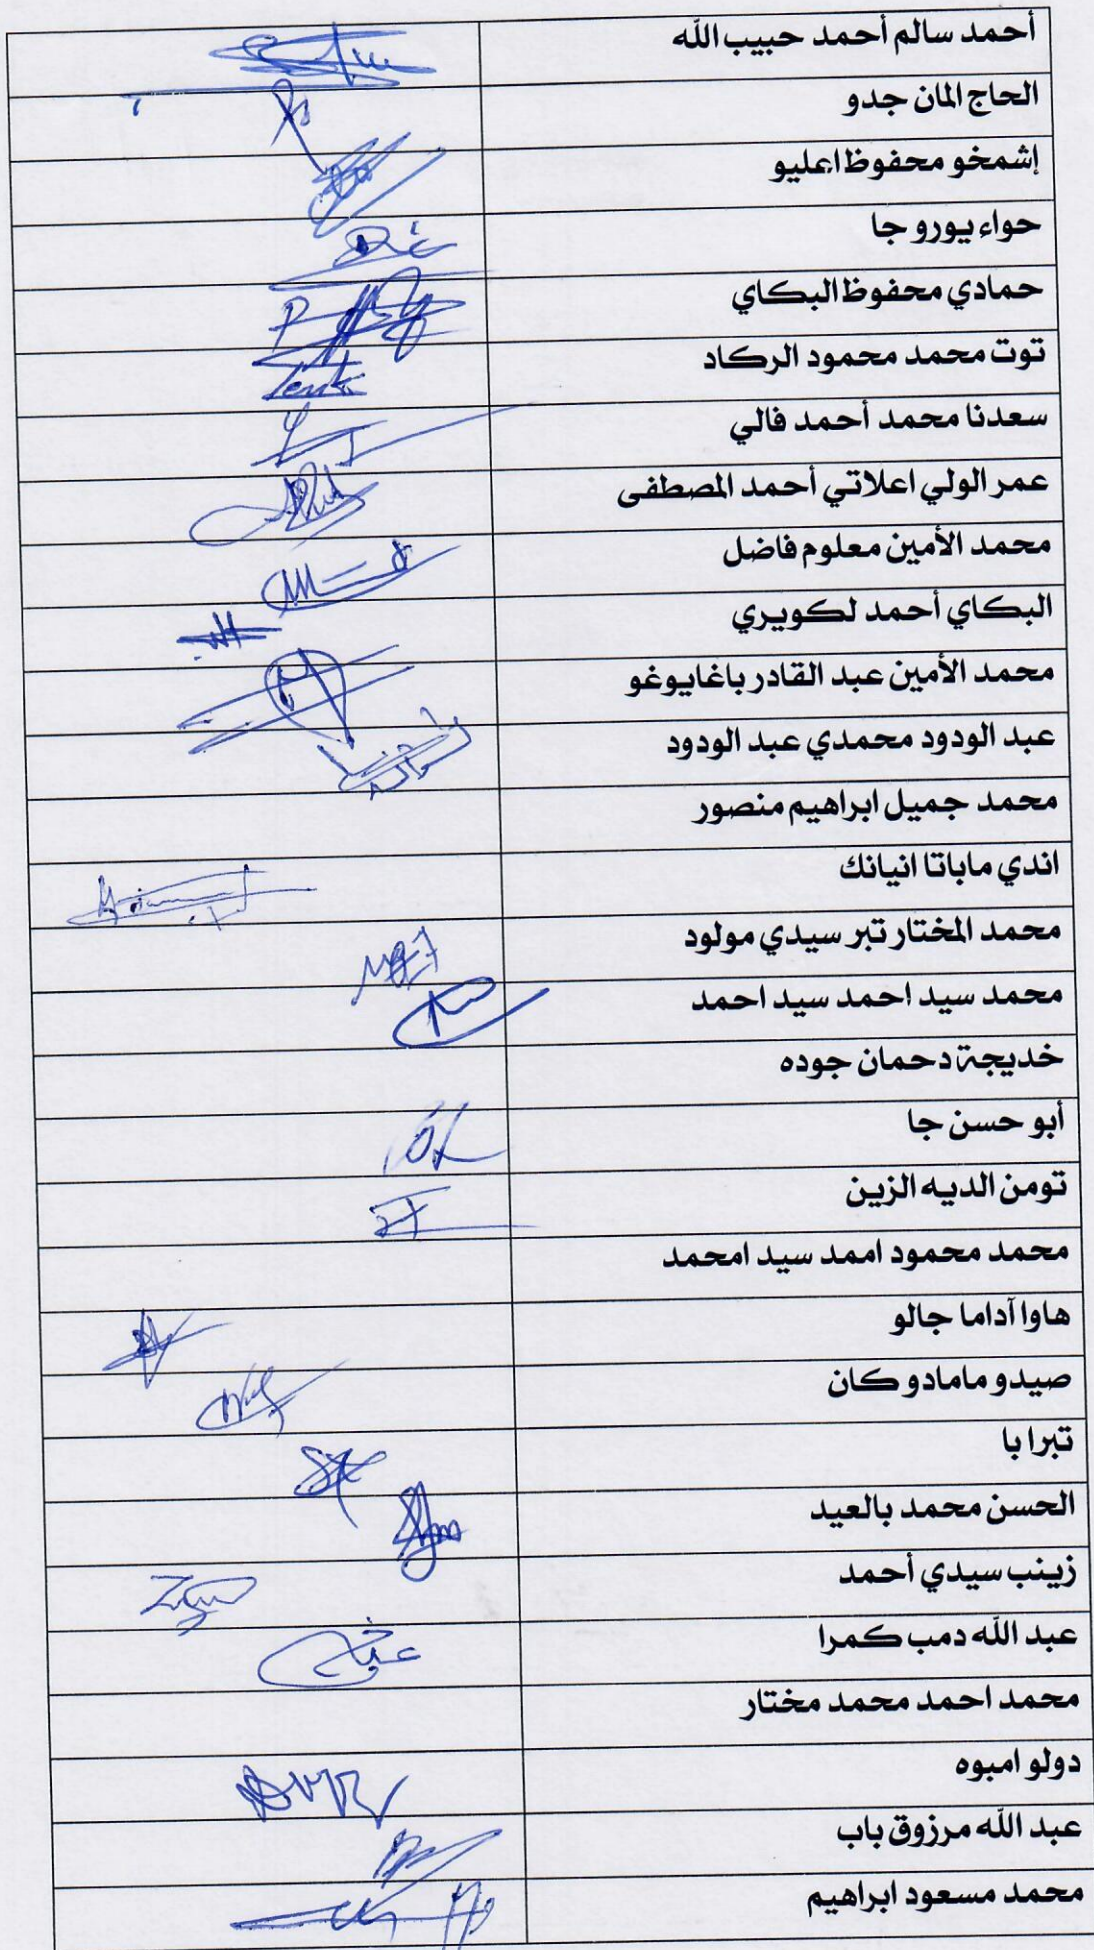 أحمد سالم أحمد حبيب الله
الحاج المان جدو
إشمخو محفوظ اعليو
حواء يورو جا
حمادي محفوظ البكاي
توت محمد محمود الركاد
سعدنا محمد أحمد فالي
عمر الولي اعلاتي أحمد المصطفى
محمد الأمين معلوم فاضل
البكاي أحمد لكويري
محمد الأمين عبد القادر باغايوغو
عبد الودود محمدي عبد الودود
محمد جميل ابراهيم منصور
اندي ماباتا انيانك
محمد المختار تبر سيدي مولود
محمد سيد احمد سيد احمد
خديجة دحمان جوده
أبو حسن جا
تومن الديه الزين
محمد محمود اممد سيد امحمد
هاوا آداما جالو
صيدو مامادو كان
تبرا با
الحسن محمد بالعيد
زينب سيدي أحمد
عبد الله دمب كمرا
محمد احمد محمد مختار
دولو امبوه
عبد الله مرزوق باب
محمد مسعود ابراهيم